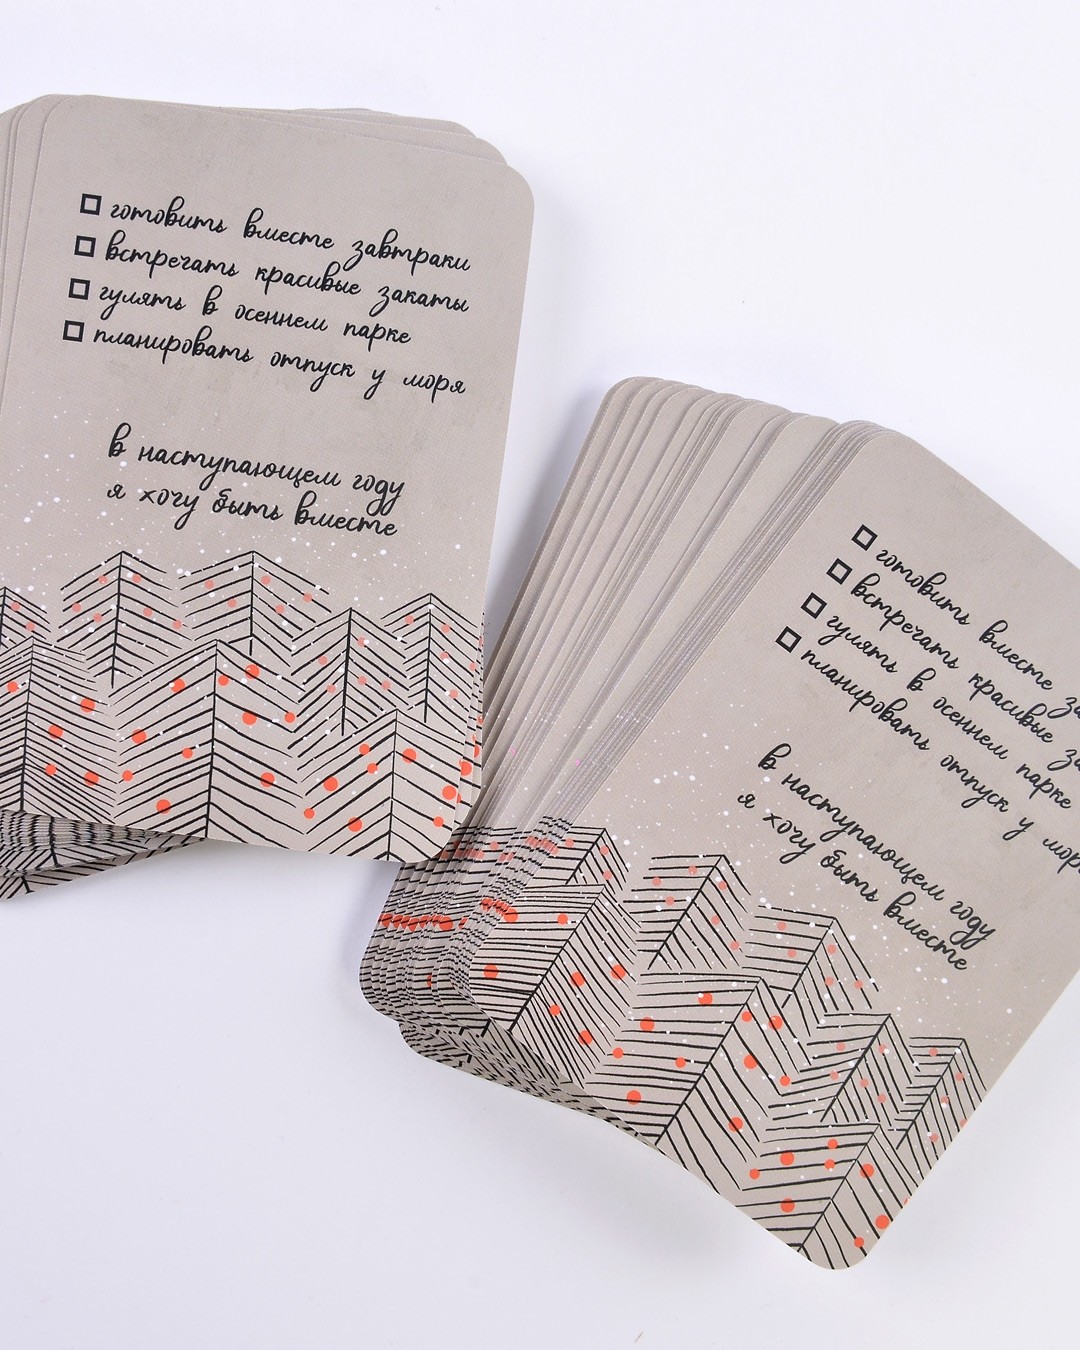 готовить вместе завтраки
встречать красивые закаты
гулять в осеннем парке
планировать отпуск у моря
в наступающем году
я хочу быть вместе
готовить вместе за
встречать красивые за
гулять в осеннем парке
планировать отпуск у моря
в наступающем году
я хочу быть вместе